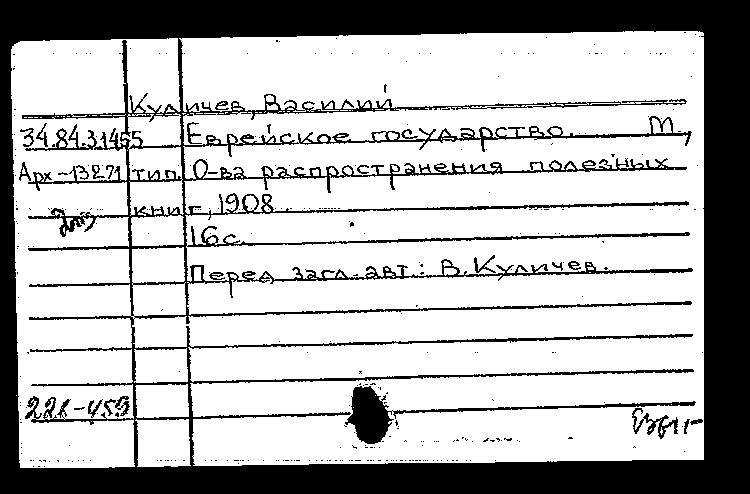 Куличев, Василий
34.84.3.1455 Еврейское государство. М.,
Арх-13271 тип. О-ва распространения полезных
книг, 1908.
16 с.
Перед загл. авт.: В. Куличев.
228-459